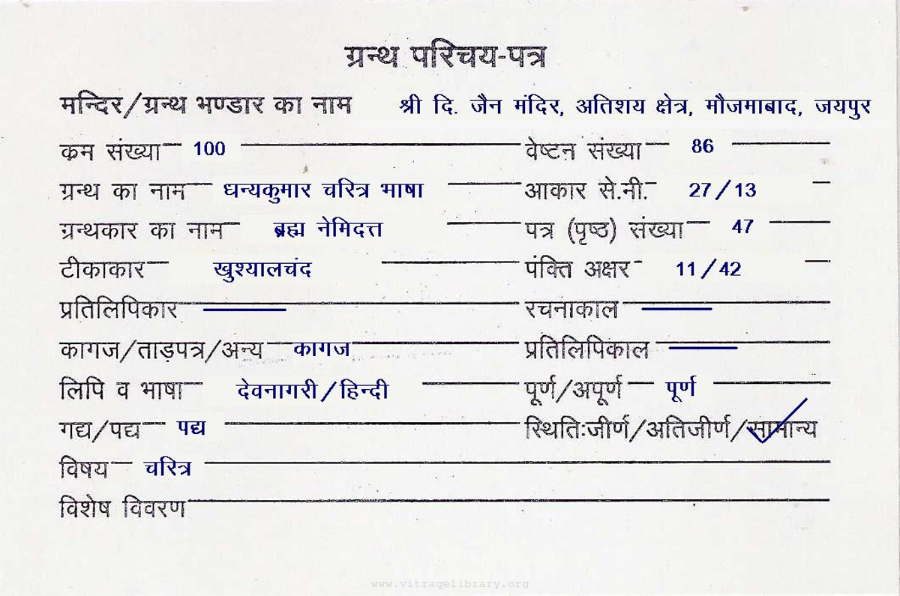 ग्रन्थ परिचय-पत्र
मन्दिर/ग्रन्थ भण्डार का नाम श्री दि. जैन मंदिर, अतिशय क्षेत्र, मौजमाबाद, जयपुर
कम संख्या 100 वेष्टन संख्या 86
ग्रन्थ का नाम धन्यकुमार चरित्र भाषा आकार से.नी. 27/13
ग्रन्थकार का नाम ब्रह्म नेमिदत्त पत्र (पृष्ठ) संख्या 47
टीकाकार खुश्यालचंद पंक्ति अक्षर 11/42
प्रतिलिपिकार रचनाकाल
कागज/ताड़पत्र/अन्य कागज प्रतिलिपिकाल
लिपि व भाषा देवनागरी/हिन्दी पूर्ण/अपूर्ण पूर्ण
गद्य/पद्य पद्य स्थितिःजीर्ण/अतिजीर्ण/सामान्य
विषय चरित्र
विशेष विवरण
www.vitragelibrary.org